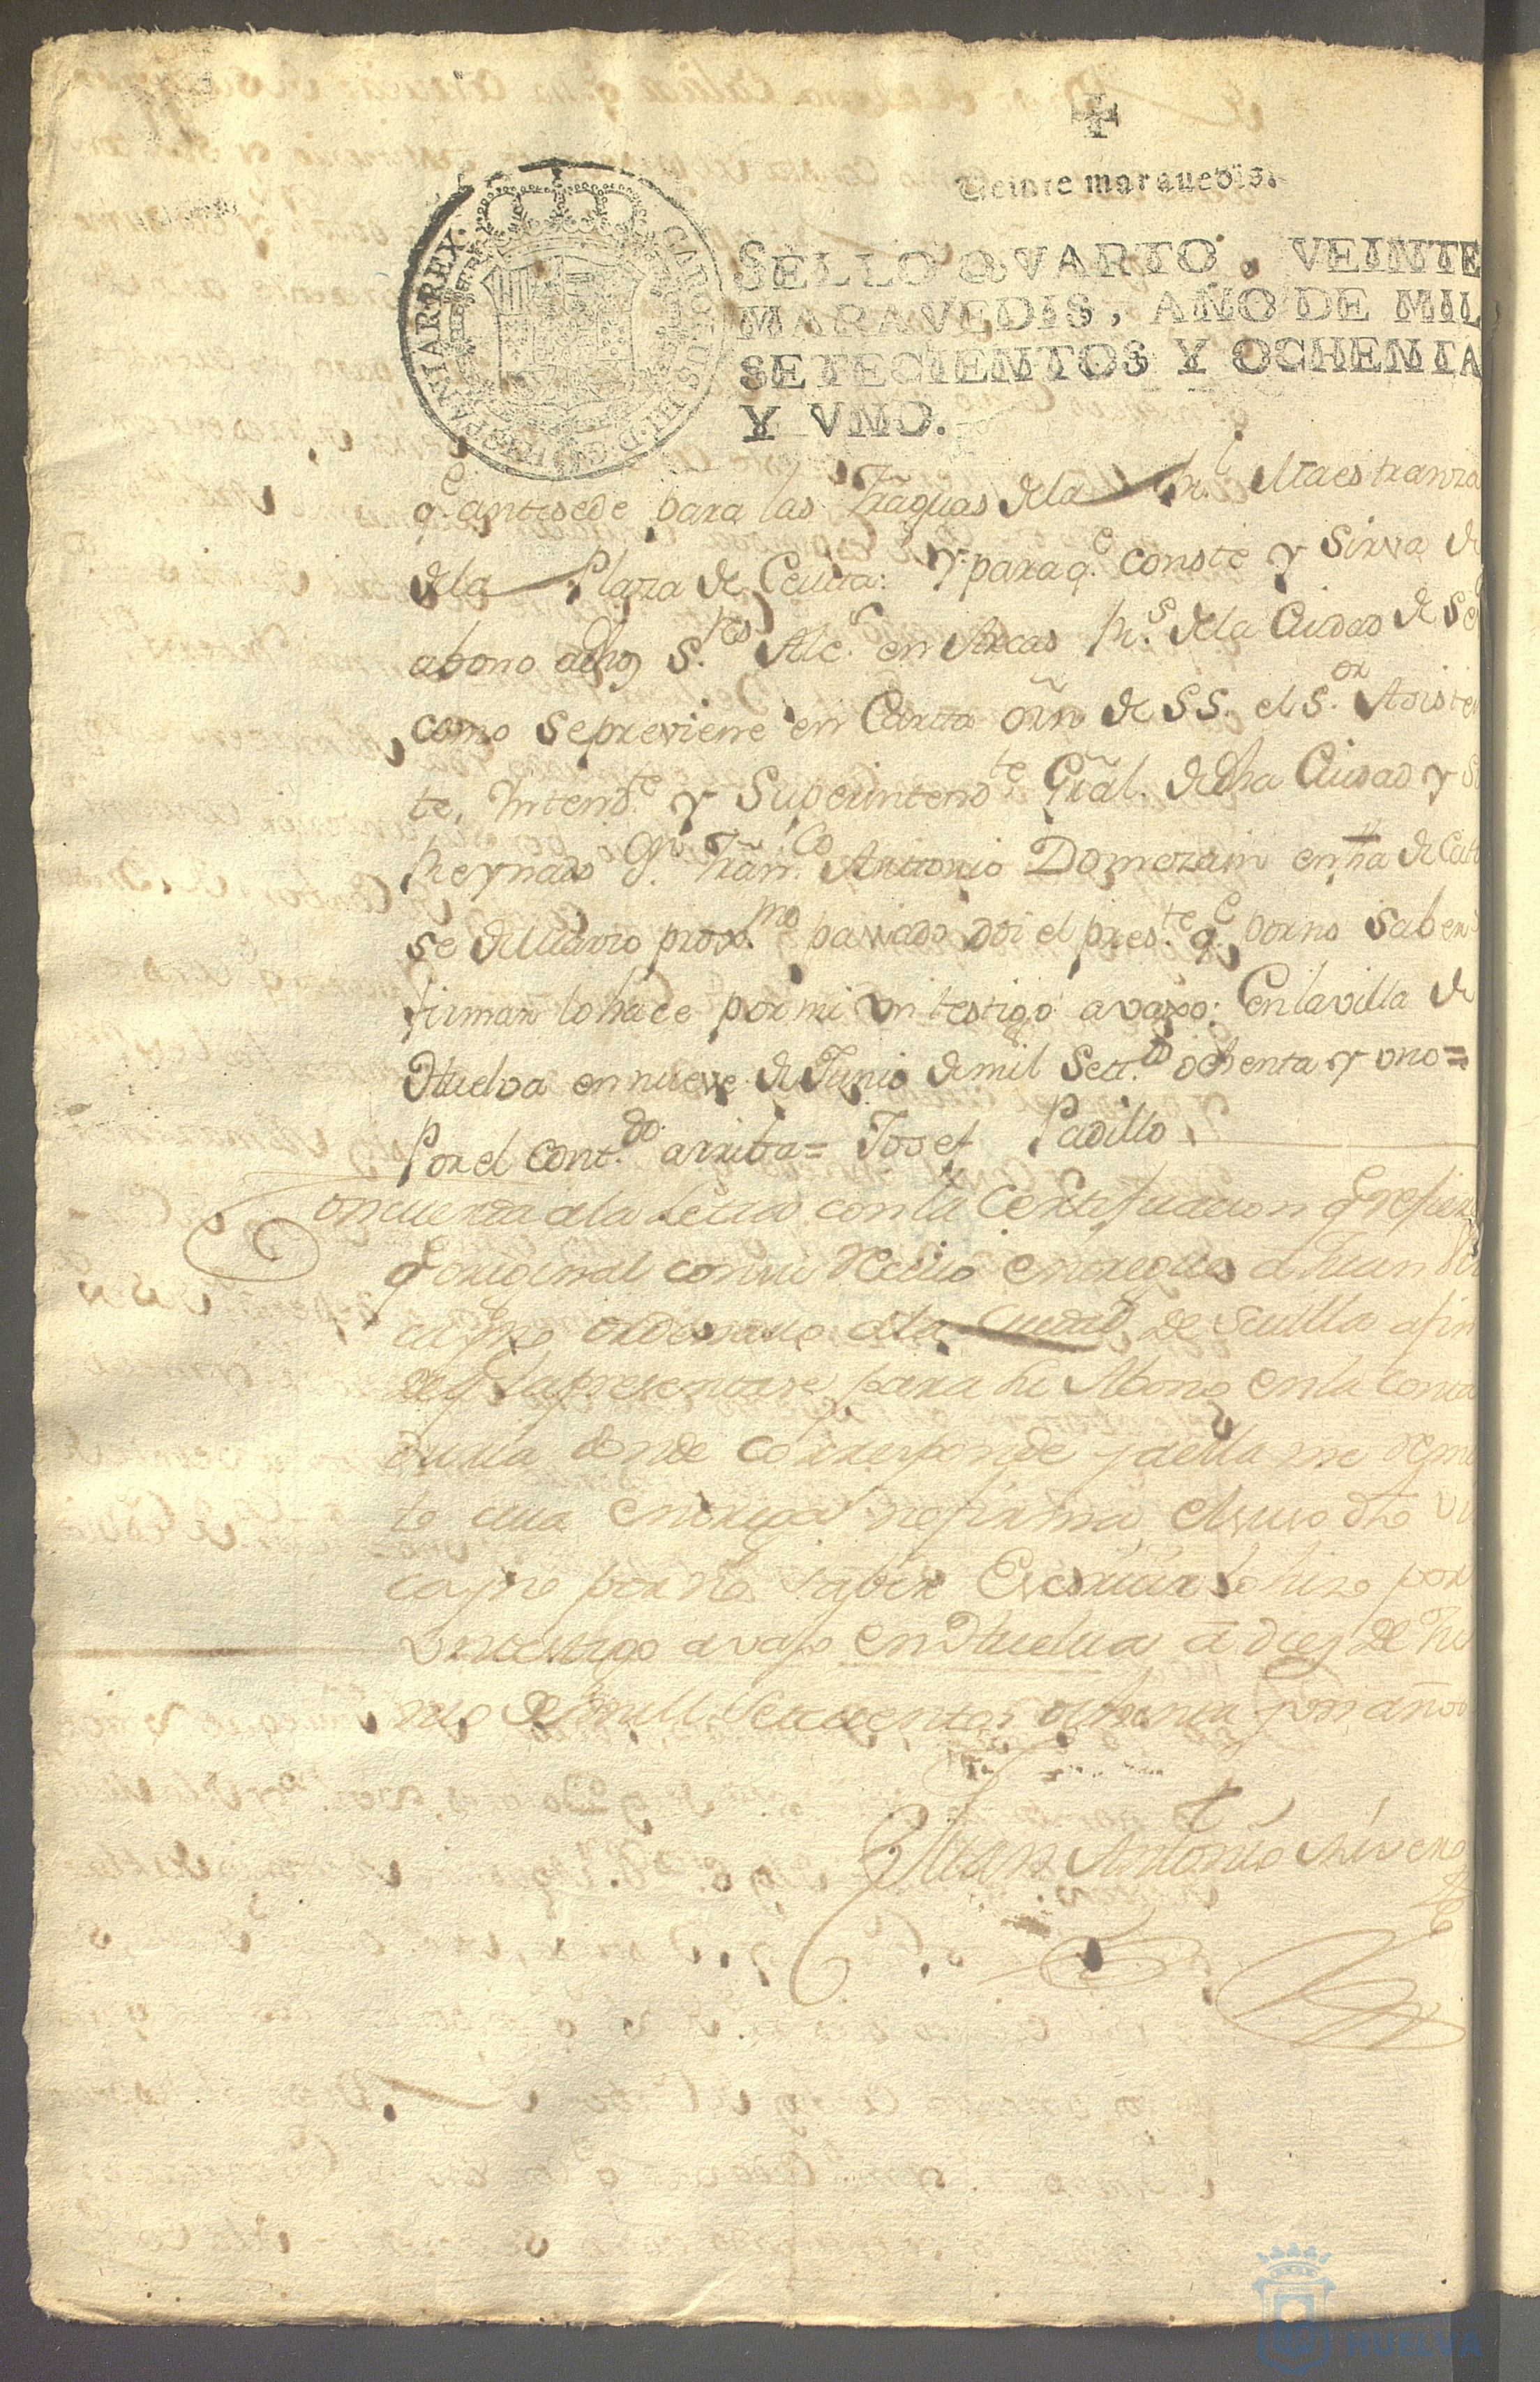 Veinte marauedis.
CAROLUS III D G HISPANIAR REX
SELLO QVARTO, VEINTE
MARAVEDIS, AÑO DE MIL
SETECIENTOS Y OCHENTA
Y VNO.
q.e antesede para las fraguas dela Rl. Maestranza
dela Plaza de Ceuta: Y para q.e conste y sirva de
abono adhos S.res Alc.s en Arcas R.s dela Ciudad de Se
como se previene en Carta orñ de SS. el S.or Asisten
te, Intend.te y Superintend.te Grãl. de dha Ciudad y su
Reynado Dn. Frãn.co Antonio Domezain en fha de Cator
se de Marzo prox.mo passado doi el pres.te q.e por no saber
firmar lo hace por mi vn testigo avaxo: En la villa de
Huelva en nueve de Junio de mil Sett.s ochenta y uno =
Por el cont.do arriba = Josef Padillo
Concuerda ala Letra con la Certificacion q.e refiere
q.e original con su Recivo entregue a Juan
ordinario ala Ciudad de Sevilla a fin
de q.e la presentase para su Abono en la Conta
duria donde corresponde y aella me remi
to cuia entrega no firma el suso dho
por no saver Escrivir lo hizo por
vn testigo avajo en Huelva a diez de Ju
nio de mill Setecientos ochenta y un años
Juan Antonio Rivero
HUELVA